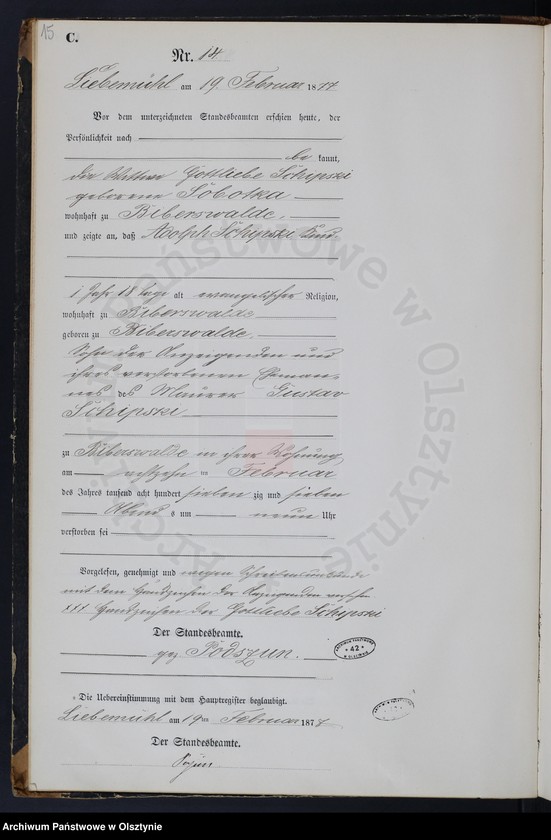 15
C.
Nr. 14
Liebemühl am 19. Februar 1877
Vor dem unterzeichneten Standesbeamten erschien heute, der
Persönlichkeit nach
be kannt,
die Wittwe Gottliebe Schipski
geborene Sobotka
wohnhaft zu Biberswalde,
und zeigte an, daß Adolph Schipski, Kind
1 Jahr 18 Tage alt evangelischer Religion,
wohnhaft zu Biberswalde
geboren zu Biberswalde,
Sohn der Anzeigenden und
ihres verstorbenen Eheman-
nes des Maurer Gustav
Schipski
zu Biberswalde in ihrer Wohnung,
am achtzehn ten Februar
des Jahres tausend acht hundert sieben zig und sieben
Abend s um neun Uhr
verstorben sei
Vorgelesen, genehmigt und wegen Schreibensunkunde
mit dem Handzeichen der Anzeigenden versehen
XXX Handzeichen der Gottliebe Schipski
Der Standesbeamte.
gez Podszun.
42
Die Uebereinstimmung mit dem Hauptregister beglaubigt.
Liebemühl am 19ten Februar 1877
Der Standesbeamte.
Archiwum Państwowe w Olsztynie
Archiwum Państwowe w Olsztynie